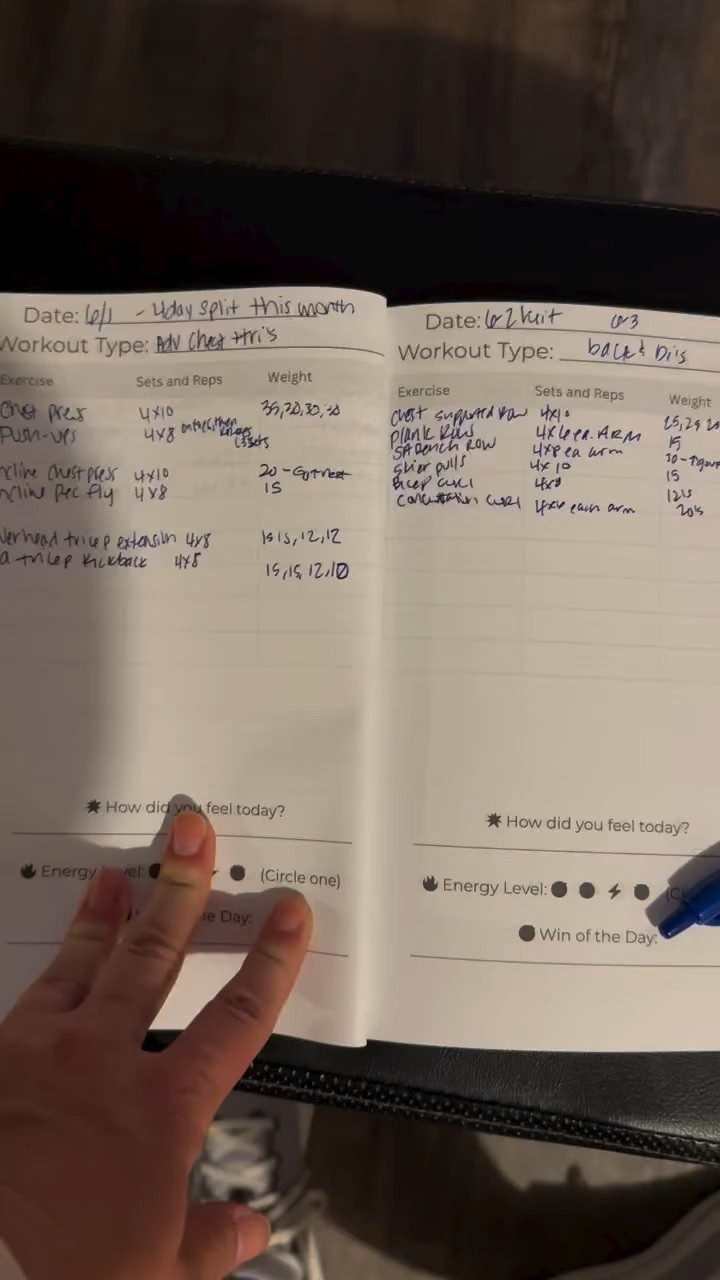 Date: 6/1 - 4day split this month
Workout Type: Adv Chest + tri's
Exercise Sets and Reps Weight
Chest press 4x10 35,20,30,30
Push-ups 4x8 then knees
ncline chest press 4x10 20 -
ncline pec fly 4x8 15
verhead tricep extension 4x8 15 15, 12, 12
a tricep kickback 4x8 15, 15, 12, 10
How did you feel today?
Energy vel: (Circle one)
he Day:
Date: 6-3
Workout Type: back & Bi's
Exercise Sets and Reps Weight
Chest supported row 4x10 25, 25 20
plank rows 4x6 ea. ARM 15
SA Bench Row 4x8 ea arm 30 -
skier pulls 4x10 15
Bicep curl 4x8
concentration curl each arm
How did you feel today?
Energy Level: (C
Win of the Day: